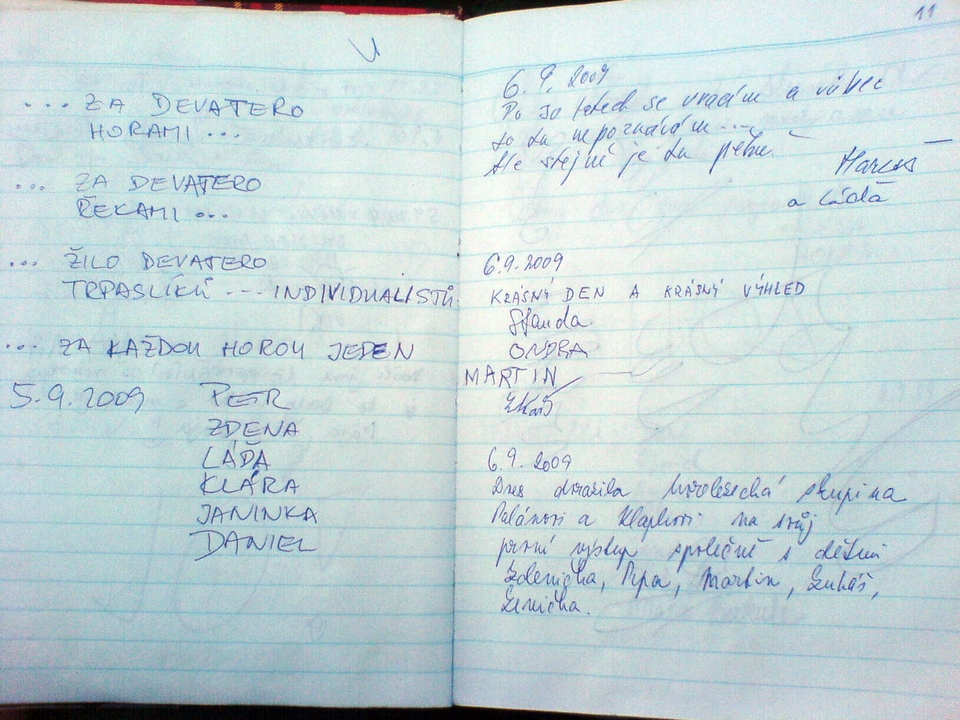 ... ZA DEVATERO
HORAMI ...
... ZA DEVATERO
ŘEKAMI ...
... ŽILO DEVATERO
TRPASLÍKŮ --- INDIVIDUALISTŮ
... ZA KAŽDOU HOROU JEDEN
5.9.2009 PETR
ZDENA
LÁĎA
KLÁRA
JANINKA
DANIEL
11
6.9.2009
Po letech se vracím a vůbec
to tu nepoznávám ---
Ale stejně je tu pěkně.
a Láďa
6.9.2009
KRÁSNÝ DEN A KRÁSNÝ VÝHLED
Standa
ONDRA
MARTIN
6.9.2009
Dnes dorazila horolezecká skupina
a na svůj
první výstup společně s dětmi
Zdenička, Pepa, Martin, Lukáš,
Lenička.